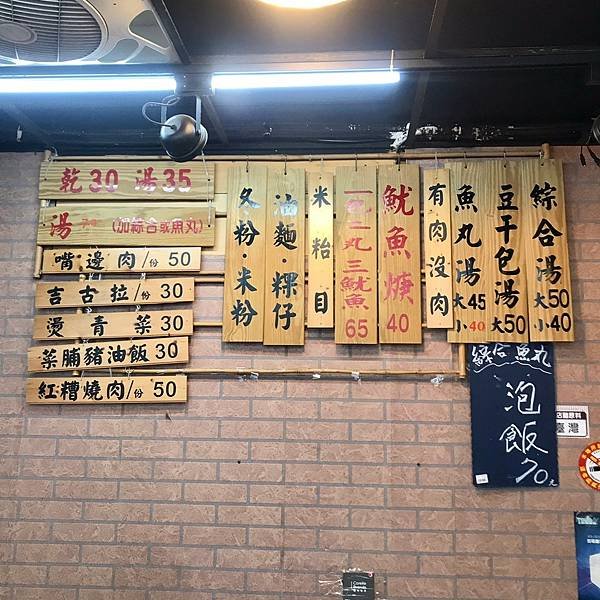 綜合湯 大50 小40
豆干包湯 大50
魚丸湯 大45 小40
有肉沒肉
魷魚焿 40
一包二丸三魷魚 65
米粭目
油麵·粿仔
冬粉·米粉
乾30 湯35
湯70 (加綜合或魚丸)
嘴邊肉/份 50
吉古拉/份 30
燙青菜 30
菜脯豬油飯 30
紅糟燒肉/份 50
綜合魚丸
泡飯
70元
臺灣